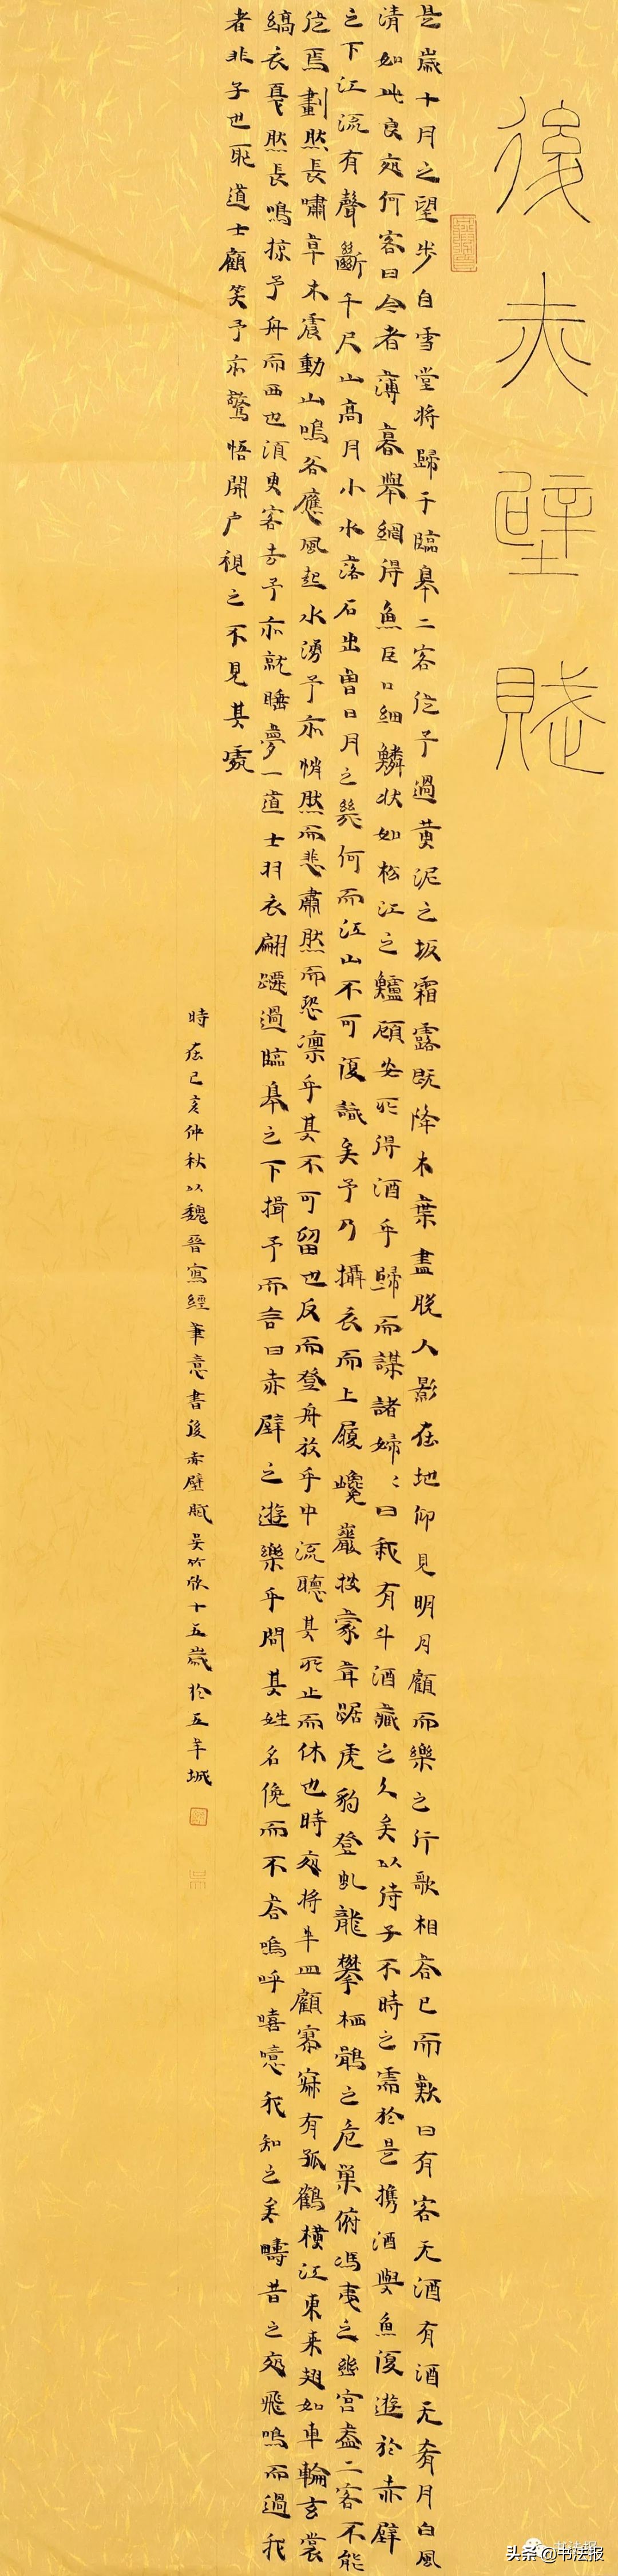 後赤壁賦
是歲十月之望步自雪堂將歸于臨皋二客從予過黃泥之坂霜露既降木葉盡脫人影在地仰見明月顧而樂之行歌相答已而歎曰有客无酒有酒无肴月白風
清如此良夜何客曰今者薄暮舉網得魚巨口細鱗狀如松江之鱸顧安所得酒乎歸而謀諸婦〻曰我有斗酒藏之久矣以待子不時之需於是攜酒與魚復遊於赤壁
之下江流有聲斷千尺山高月小水落石出曾日月之幾何而江山不可復識矣予乃攝衣而上履巉巖披蒙茸踞虎豹登虬龍攀栖鶻之危巢俯馮夷之幽宮蓋二客不能
從焉劃然長嘯草木震動山鳴谷應風起水湧予亦悄然而悲肅然而恐凜乎其不可留也反而登舟放乎中流聽其所止而休也時夜將半四顧寥寂有孤鶴橫江東來翅如車輪玄裳
縞衣戛然長鳴掠予舟而西也須臾客去予亦就睡夢一道士羽衣翩躚過臨皋之下揖予而言曰赤壁之遊樂乎問其姓名俛而不答嗚呼嘻噫我知之矣疇昔之夜飛鳴而過我
者非子也耶道士顧笑予亦驚悟開户視之不見其處
時在己亥仲秋以魏晉寫經筆意書後赤壁賦吳竹欣十五歲於五羊城
书法报
头条 @书法报